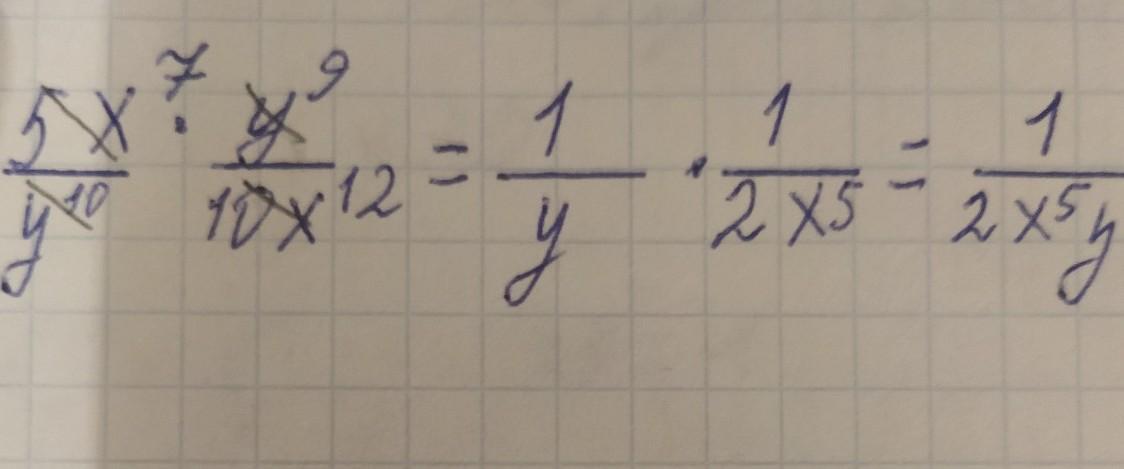 5x⁷/y¹⁰ · y⁹/10x¹² = 1/y · 1/2x⁵ = 1/2x⁵y